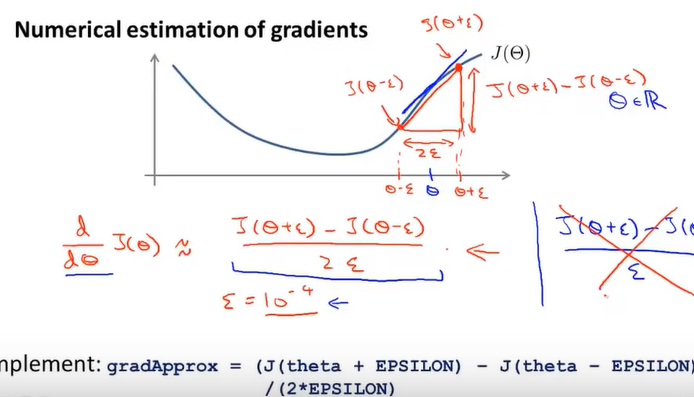 Numerical estimation of gradients
J(θ+ε)
J(Θ)
J(θ-ε)
J(θ+ε)-J(θ-ε)
θ∈ℝ
2ε
θ-ε θ θ+ε
d/dθ J(θ) ≈ J(θ+ε) - J(θ-ε) / 2ε
J(θ+ε) - J(θ / ε
ε = 10^-4
mplement: gradApprox = (J(theta + EPSILON) - J(theta - EPSILON)
/(2*EPSILON)